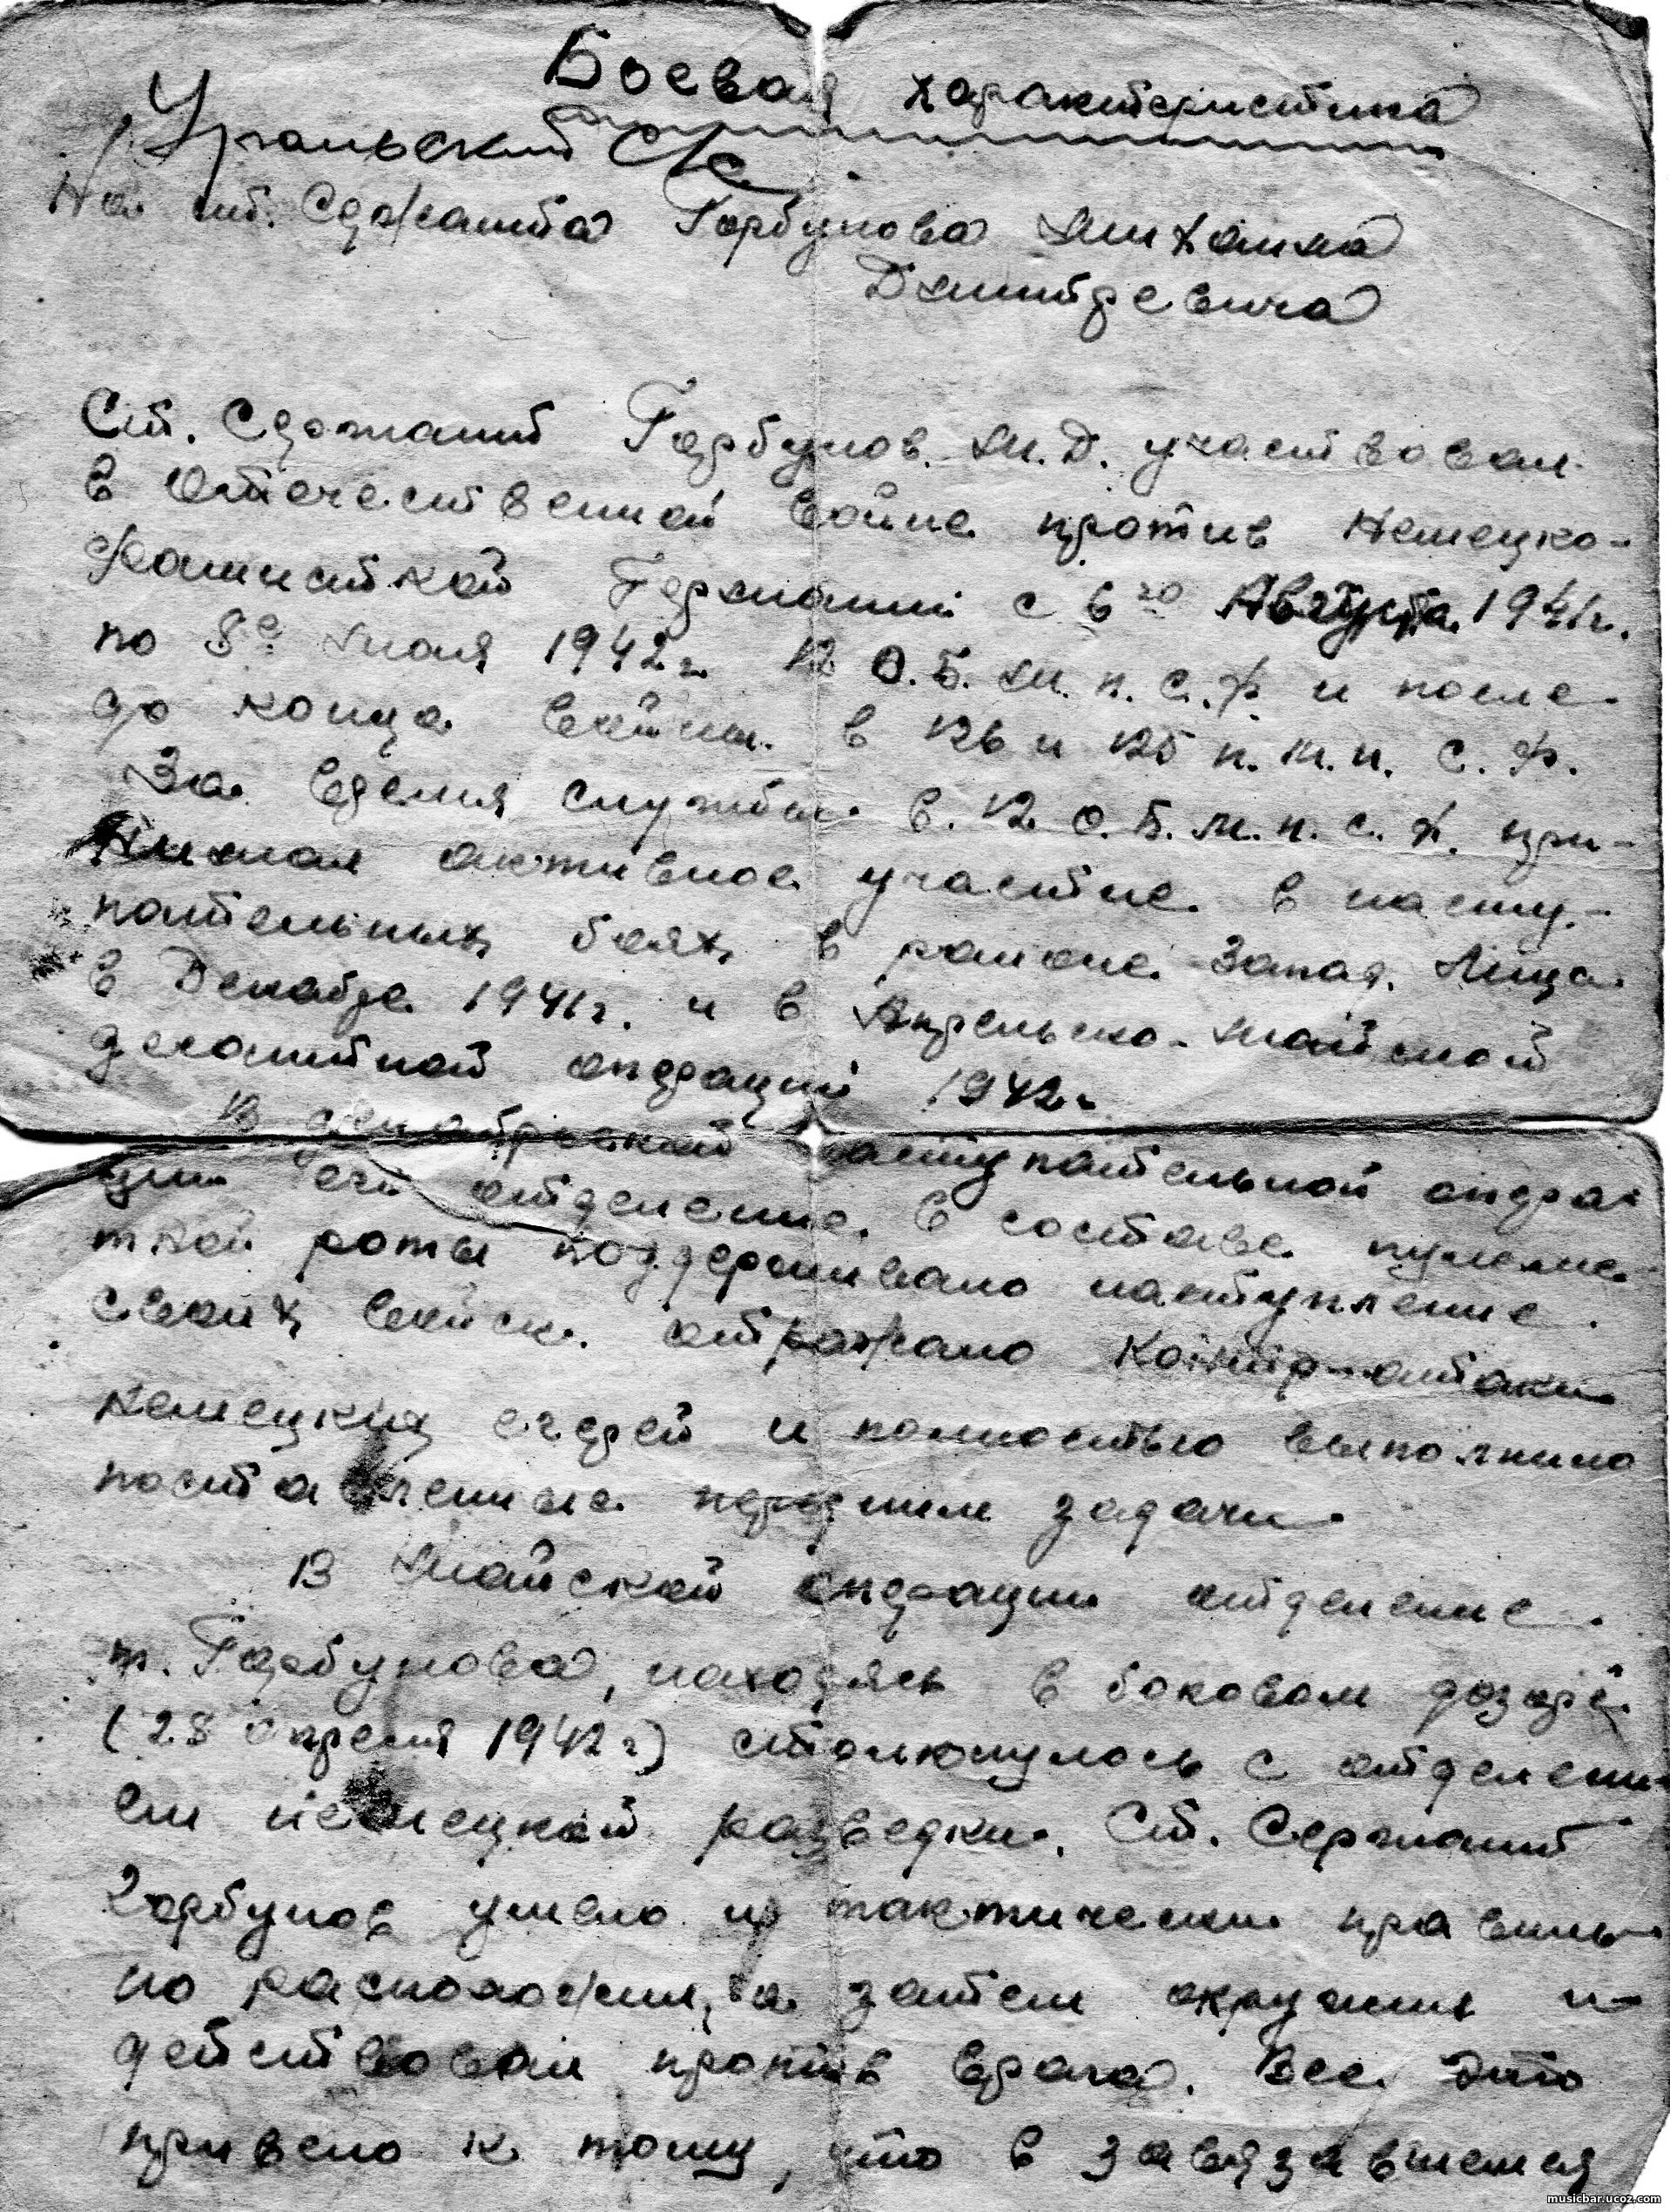 Боевая характеристика
Уральский С/С
На ст. Сержанта Горбунова Михаила
Дмитревича
Ст. Сержант Горбунов. М.Д. участвовал
в Отечественной войне против Немецко-
фашисткой Германии с 6го Августа 1941г.
по 8е Июля 1942г. 12 О.Б.М.п.С.Ф и после
до конца войны. в 126 и 125 п.м.п. С.Ф.
За время службы в. 12 О.Б.М.п.С.Ф. при-
нимал активное участие в насту-
пательных боях в районе Запад. Лица
в Декабре 1941г. и в Апрельско-майской
десантной операции 1942г.
В декабрьской наступательной опера-
ции его отделение в составе пулеме-
тной роты поддерживало наступление
своих войск. отражало контр-атаки
немецких егерей и полностью выполнило
поставленные перед ним задачи.
В Майской операции отделение
т. Горбунова, находясь в боковом дозоре
(28 апреля 1942г) столкнулось с отделени-
ем немецкой разведки. Ст. Сержант
Горбунов умело и тактически правиль-
но расположил, а затем окружил и
действовал против врага. Все это
привело к тому, что в завязавшемся
musicbar.ucoz.com